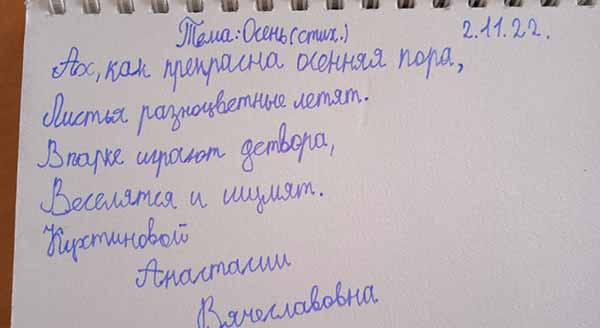 Тема: Осень (стих.) 2.11.22.
Ах, как прекрасна осенняя пора,
Листья разноцветные летят.
В парке играют детвора,
Веселятся и шумят.
Кухтиновой
Анастасии
Вячеславовна